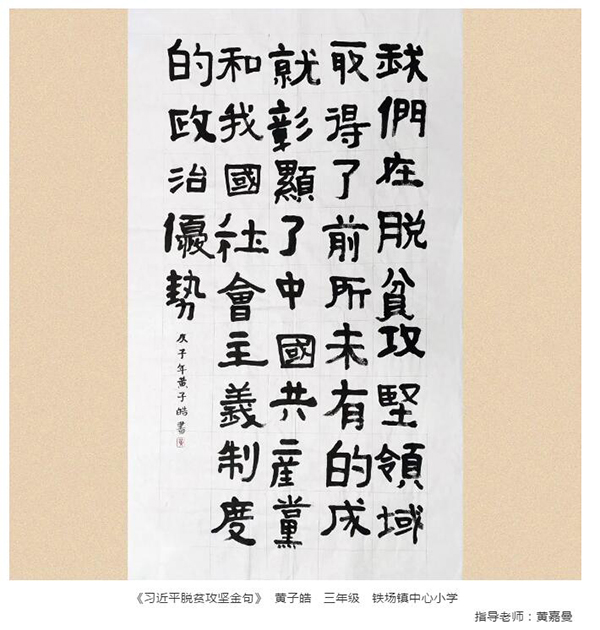 我們在脱貧攻堅領域
取得了前所未有的成
就彰顯了中國共産黨
和我國社會主義制度
的政治優勢
子年黄子皓書
《习近平脱贫攻坚金句》 黄子皓 三年级 铁场镇中心小学
指导老师：黄嘉曼